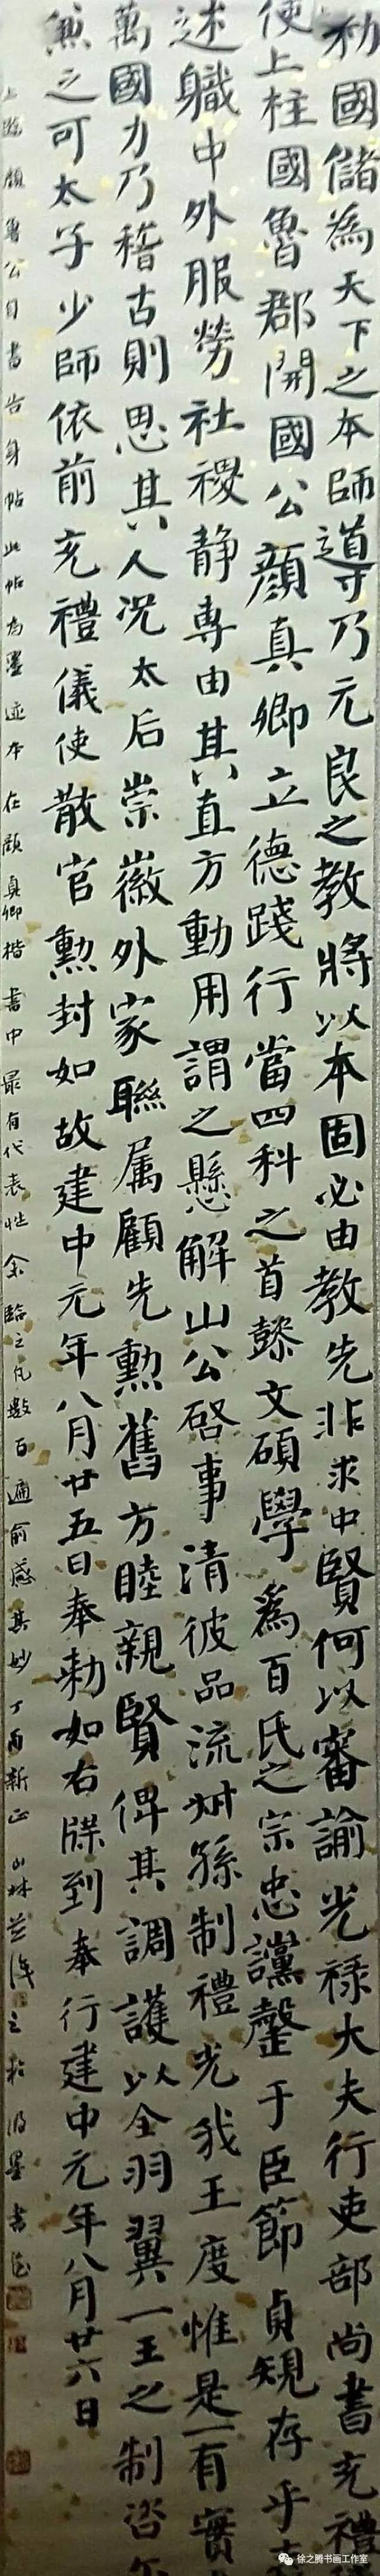 勑國儲為天下之本師導乃元良之教將以本固必由教先非求中賢何以審諭光祿大夫行吏部尚書充禮
使上柱國魯郡開國公顏真卿立德踐行當四科之首懿文碩學為百氏之宗忠讜罄于臣節貞規存乎
述職中外服勞社稷静專由其直方動用謂之懸解山公啓事清彼品流叔孫制禮光我王度惟是一有實
萬國力乃稽古則思其人況太后崇徽外家聯属顧先勲舊方睦親賢俾其調護以全羽翼一王之制咨尔
兼之可太子少師依前充禮儀使散官勲封如故建中元年八月廿五日奉勑如右牒到奉行建中元年八月廿六日
上臨顏魯公自書告身帖此帖為墨迹本在顏真卿楷書中最有代表性余臨之凡數百遍前感其妙丁酉新正
徐之腾书画工作室